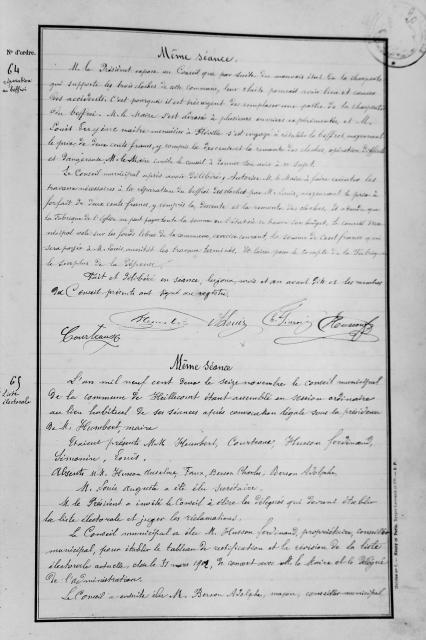 Nº d'ordre.
64
réparation
au beffroi
Même séance.
M. le Président expose au Conseil que par suite du mauvais état de la charpente
qui supporte les trois cloches de cette commune, leur chute pourrait avoir lieu et causer
des accidents. C'est pourquoi il est urgent de remplacer une partie de la charpente
du beffroi. M. le Maire s'est adressé à plusieurs ouvriers expérimentés et M.
Louis maître menuisier à s'est engagé à rétablir le beffroi moyennant
le prix de deux cents francs, y compris la descente et la remonte des cloches, opération difficile
et dangereuse. M. le Maire invite le conseil à donner son avis à ce sujet.
Le Conseil municipal après avoir délibéré, autorise M. le Maire à faire exécuter les
travaux nécessaires à la réparation du beffroi des cloches par M. Louis, moyennant le prix à
forfait de deux cents francs, y compris la descente et la remonte des cloches. Et attendu que
la Fabrique de l'église ne peut supporter la somme
municipal vote sur les fonds libres de la commune, la somme de cent francs qui
sera payée à M. Louis, aussitôt les travaux terminés, et laisse pour le compte de la Fabrique
le surplus de la dépense.
Fait et délibéré en séance, les jour, mois et an avant dits et les membres
du Conseil présents ont signé au registre.
Humbert Louis Husson
Courteaux
65
Liste
électorale
Même séance
L'an mil neuf cent deux le seize novembre le conseil municipal
de la commune de Heillecourt étant assemblé en session ordinaire
au lieu habituel de ses séances après convocation légale sous la présidence
de M. Humbert, maire
Étaient présents M.M. Humbert, Courteaux, Husson ferdinand,
Simonin, Louis.
Absents M.M. Husson Anselme, Faux, Berson Charles, Berson Adolphe
M. Louis Auguste a été élu secrétaire.
M. le Président a invité le Conseil à élire les délégués qui devront établir
la liste électorale et juger les réclamations.
Le Conseil municipal a élu M. Husson ferdinand, propriétaire, conseiller
municipal, pour établir le tableau de rectification et la révision de la liste
électorale actuelle, close le 31 mars 1902, de concert avec M. le Maire et le délégué
de l'administration.
Le Conseil a ensuite élu M. Berson Adolphe, maçon, conseiller municipal